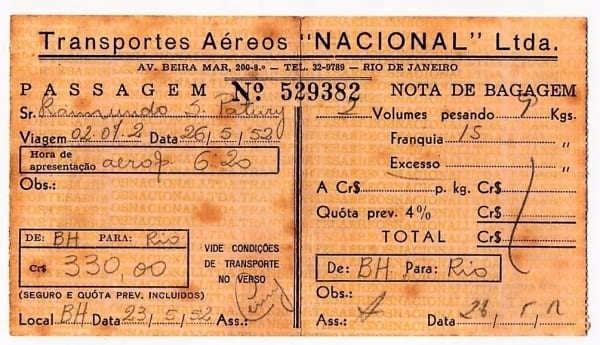 Transportes Aéreos "NACIONAL" Ltda.
AV. BEIRA MAR, 200-8.º — TEL. 32-9789 — RIO DE JANEIRO
PASSAGEM Nº 529382 NOTA DE BAGAGEM
Sr. Raimundo S.
Viagem Data 26/5/52
Hora de apresentação aerop. 6:20
Obs.:
DE: BH PARA: Rio
Cr$ 330,00
(SEGURO E QUÓTA PREV. INCLUIDOS)
VIDE CONDIÇÕES
DE TRANSPORTE
NO VERSO
Local BH Data 23/5/52 Ass.:
Volumes pesando 9 Kgs.
Franquia 15 "
Excesso "
A Cr$ p. kg. Cr$
Quóta prev. 4% Cr$
TOTAL Cr$
De: BH Para: Rio
Obs.:
Ass.: Data